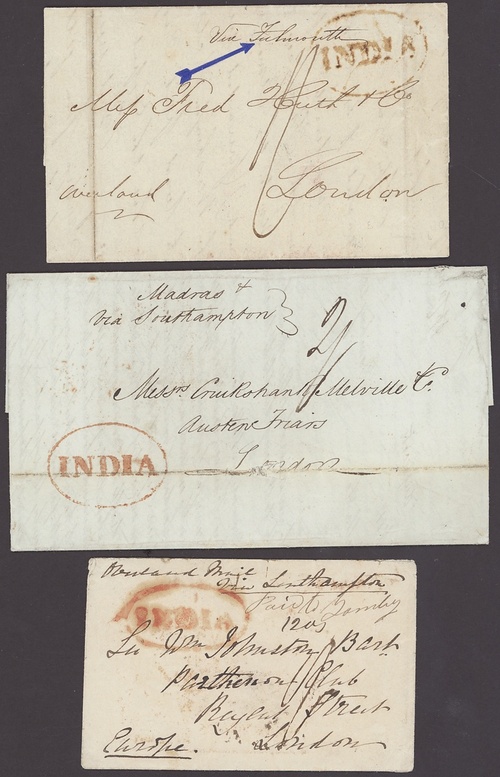 Via Falmouth
INDIA
1/
Mess Fred Huth & Co
overland
London
Madras &
via Southampton
2/
Messrs Cruikshank Melville & Co.
Austen Friars
London
INDIA
Overland Mail
via Southampton
INDIA
Paid to Bombay
12 as
Sir Wm Johnston Bart
Parthenon Club
Regent Street
London
Europe.